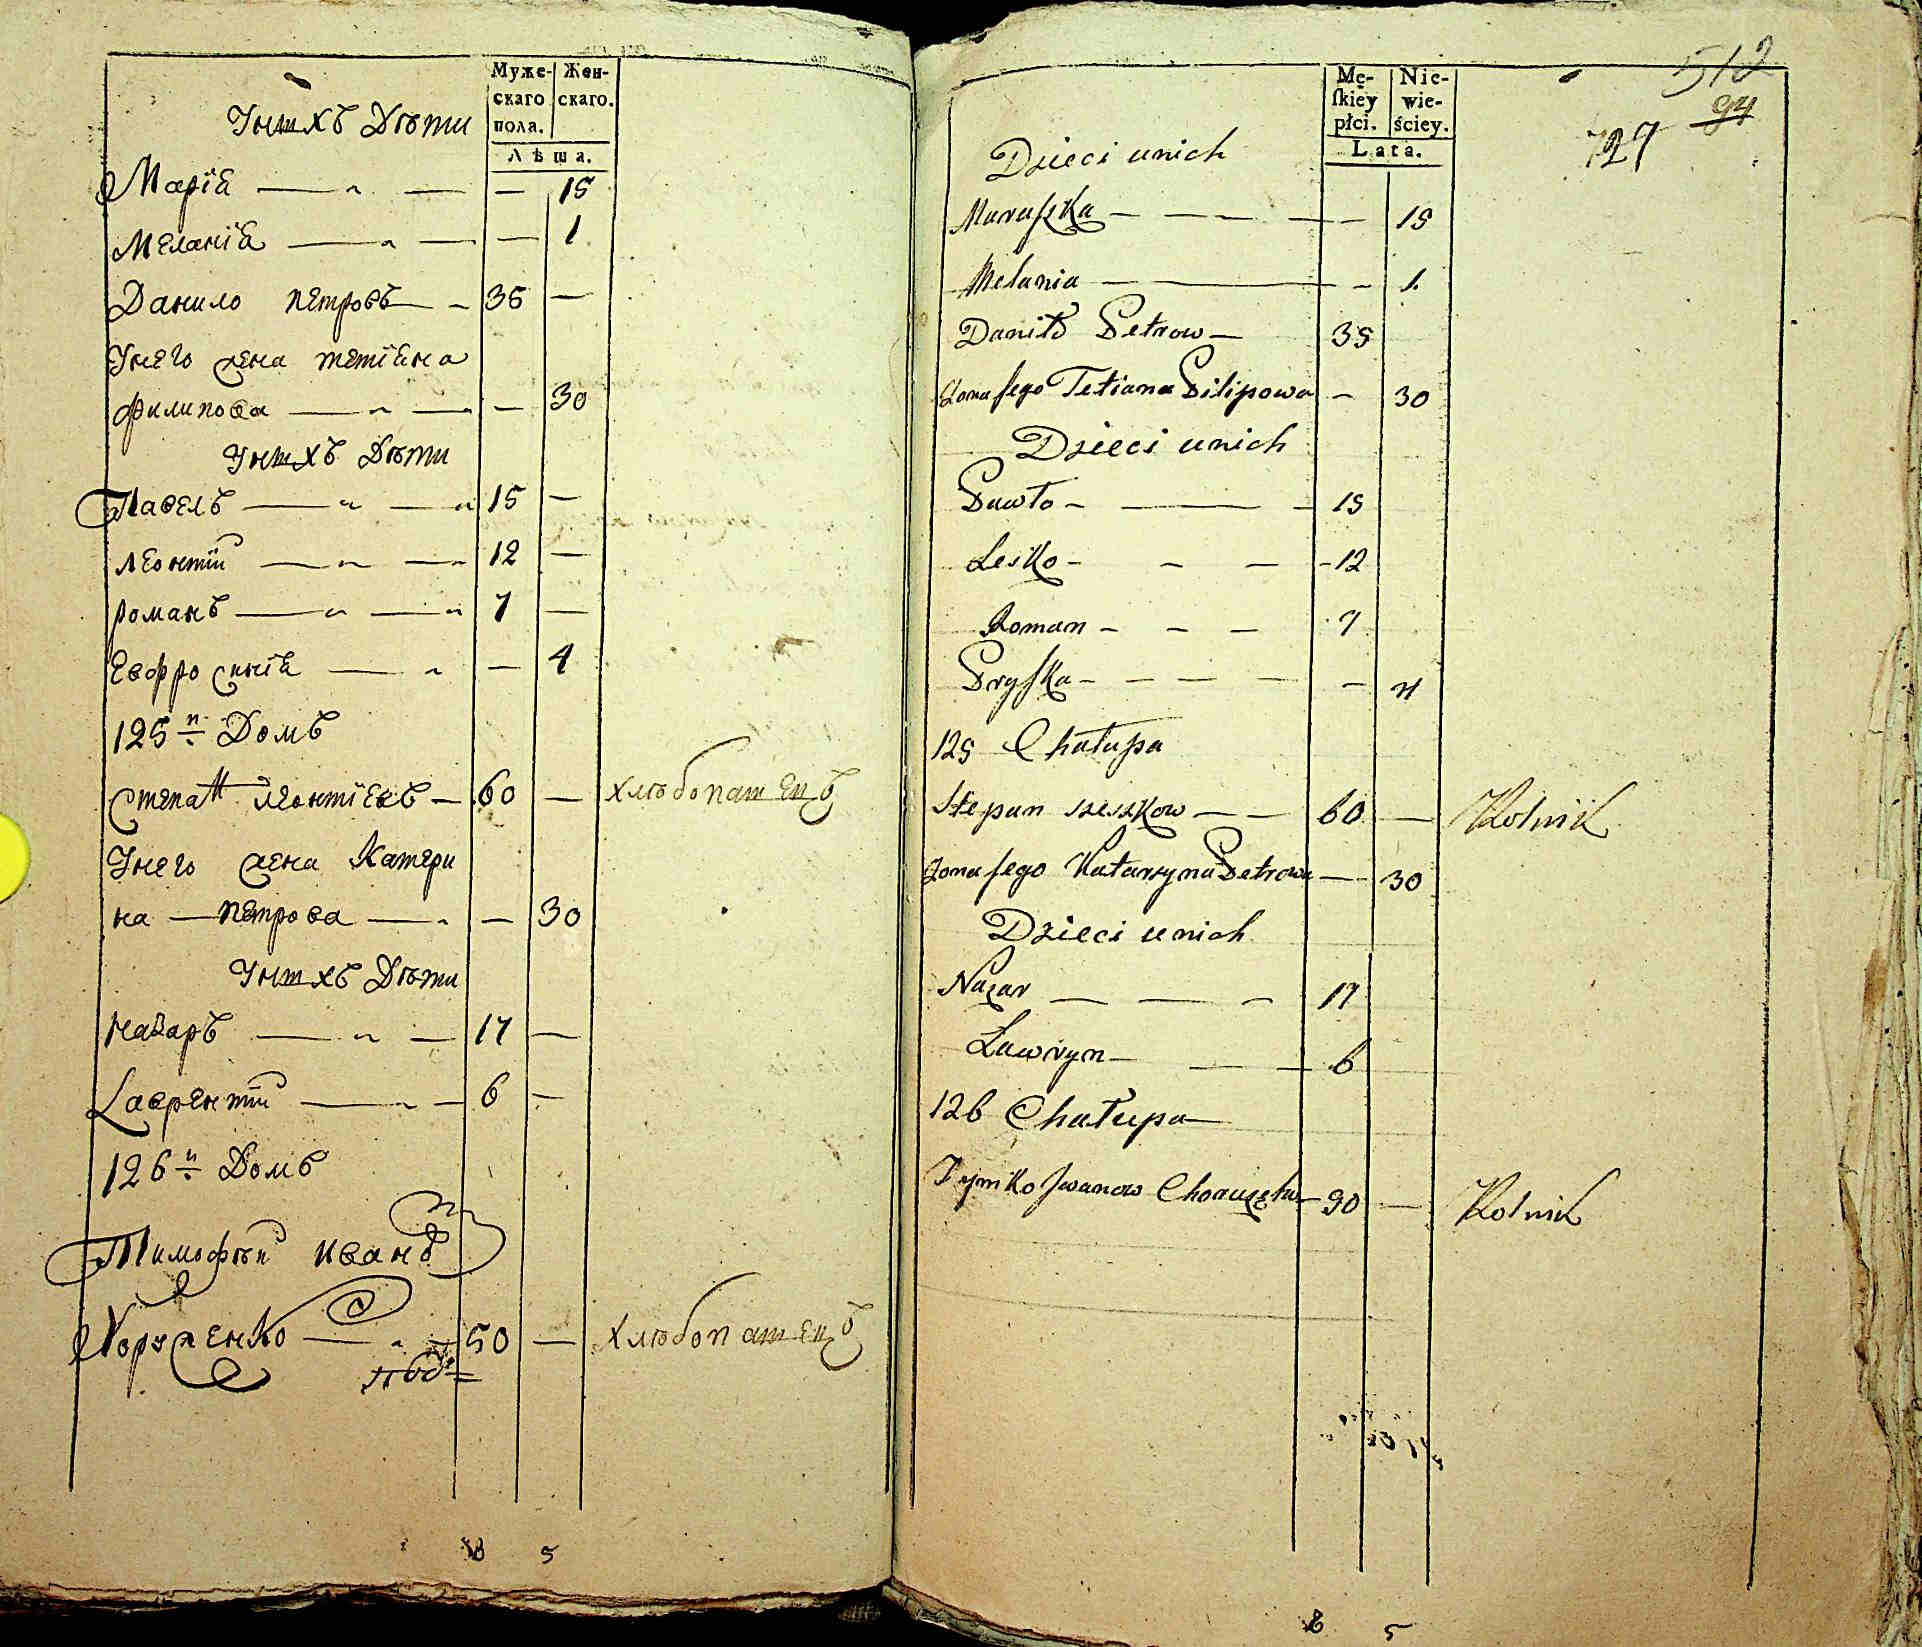 Муже- Жен-
скаго скаго.
пола.
Лѣта.
Унихъ Дѣти
Марїа — „ — — 15
Меланїа — „ — — 1
Данило Петровъ — 35 —
Унего жена Тетїана
Филипова — „ — — 30
Унихъ Дѣти
Павелъ — „ — „ 15 —
Леонтїй — „ — „ 12 —
Романъ — „ — „ 7 —
Евфросинїа — „ — 4
125й Домъ
Степан Леонтїевъ — 60 — хлѣбопашецъ
Унего жена Катери
на — Петрова — „ — 30
Унихъ Дѣти
Назаръ — „ — 17 —
Лаврентїй — „ — 6 —
126й Домъ
Тимофѣй Иванъ
Хорuженко — „ — 50 — Хлѣбопашецъ
8 5
512
94
727
Mę- Nie-
ſkiey wie-
płci. ściey.
Lata.
Dzieci unich
Maruſzka — — — — — 15
Melania — — — 1.
Daniło Petrow — 35
Zona jego Tetiana Pilipowa — 30
Dzieci unich
Pawło — — — 15
Lesko — — — 12
Roman — — — 7
Pryſka — — — — — 4
125 Chałupa
Stepan Leszkow — — 60 — Rolnik
Zona jego Katarzyna Petrowa — 30
Dzieci unich
Nazar — — — 17
Ławryn — — — 6
126 Chałupa
Tymko Jwanow — 50 — Rolnik
8 5